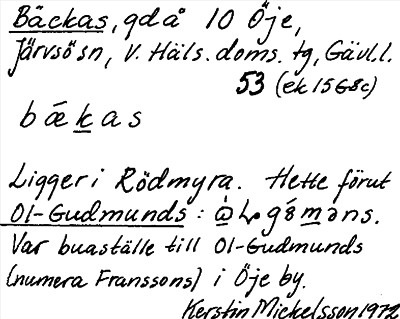 Bäckas, gd å 10 Öje,
Järvsö sn, V. Häls. doms. tg, Gävl.l.
53 (ek 15G8c)
bǽkas
Ligger i Rödmyra. Hette förut
Ol-Gudmunds : gǿməns.
Var buaställe till Ol-Gudmunds
(numera Franssons) i Öje by.
Kerstin Mickelsson 1972